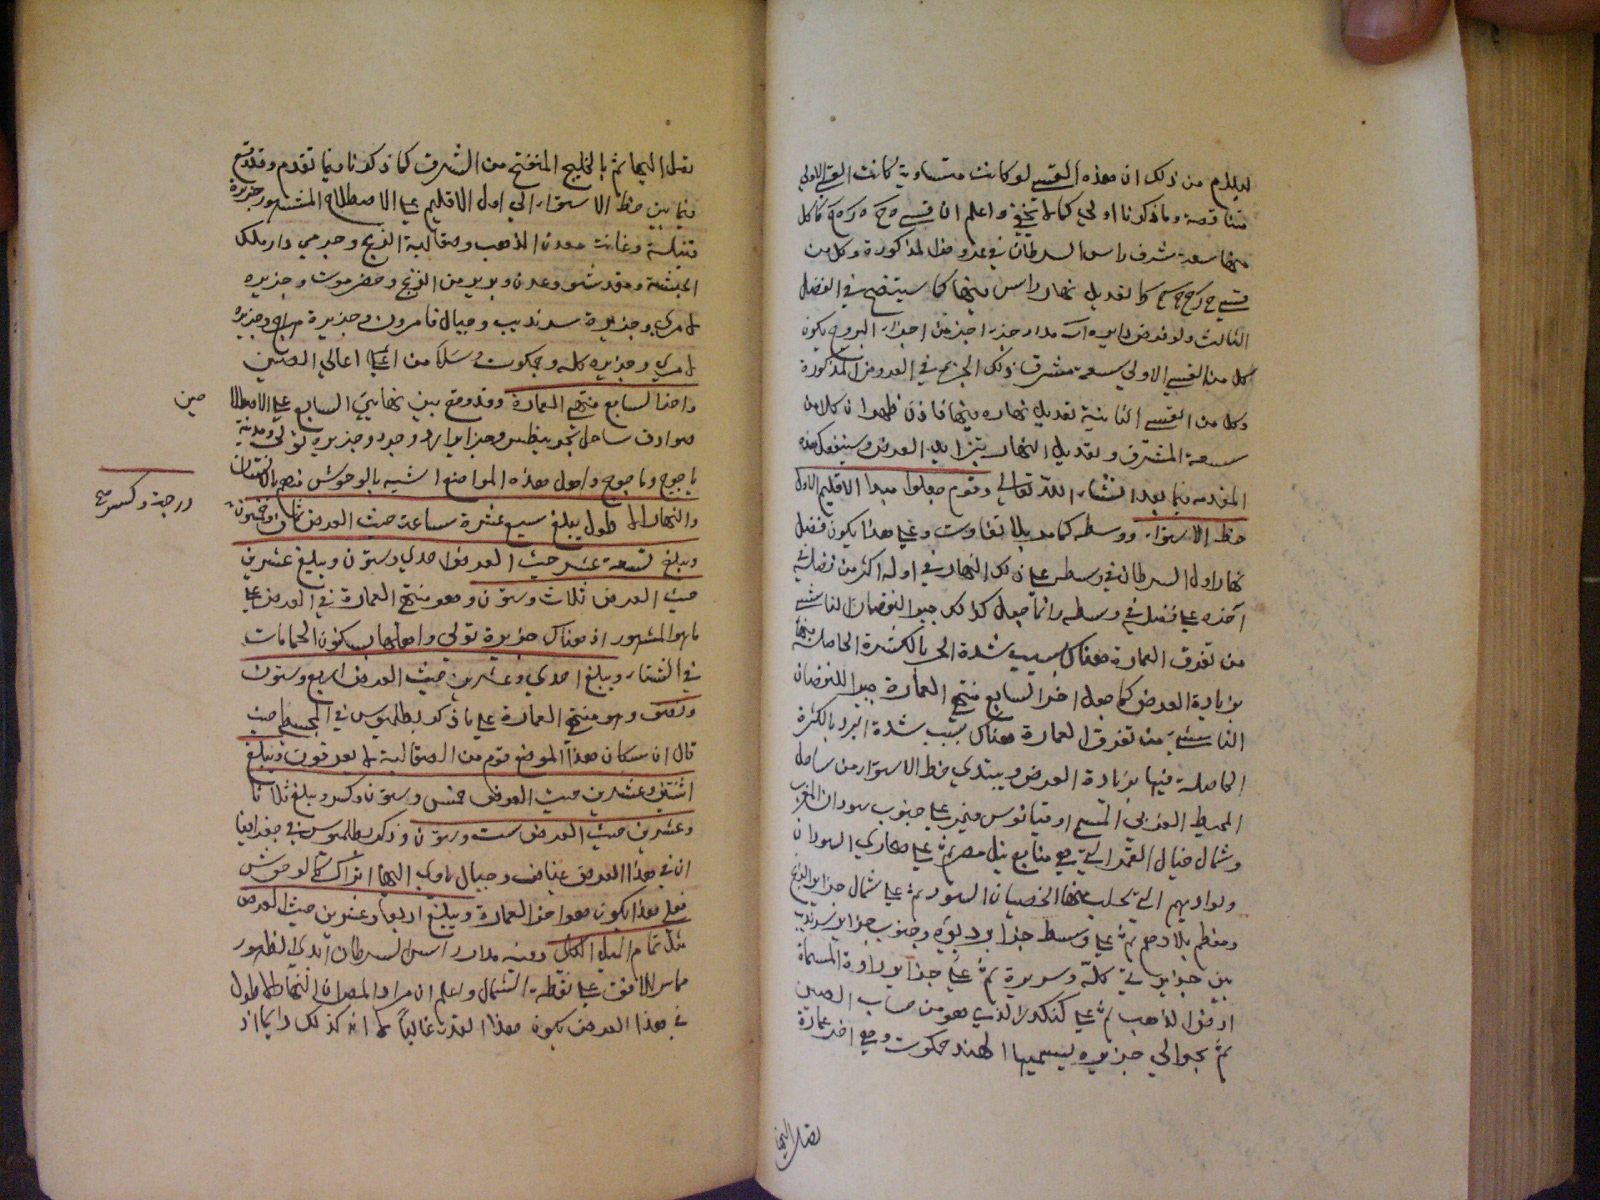 ليلزم من ذلك ان هذه القسي لو كانت متساوية كانت القسي الاولى
متناقصة وما ذكرنا اولى كما لا يخفى واعلم ان قسي
منها سعة مشرف راس السرطان في عروضها المذكورة وكل من
قسي تعديل نهار راس منها كما سيتضح في الفصل
الثالث ولو فرض دايرة مدار جزء اخر من اجزاء البروج يكون
كل من القسي الاولى سعة مشرق ذلك الجزء في العروض المذكورة
وكل من القسي الثانية تعديل نهاره فيها فاذن ظهر ان كلا من
سعة المشرق وتعديل النهار يتزايد العرض وسينفعك هذه
المقدمة فيما بعد انشاء الله تعالى وقوم جعلوا مبدا الاقليم الاول
خط الاستواء ووسطه كما مر بلا تفاوت وعلى هذا يكون فضل
نهار اول السرطان في وسطه على ذلك النهار في اوله اكثر من فضله في
آخره على فضله في وسطه وانما جعل كذلك جبرا لنقصان الناشئ
من تفرق العمارة هناك بسبب شدة الحر بالكثرة الحاصلة فيها
بزيادة العرض كما جعل اخر السابع منتهى العمارة جبرا للنقصان
الناشئ من تفرق العمارة هناك بسبب شدة البرد بالكثرة
الحاصلة فيها بزيادة العرض ويبتدى خط الاستواء من ساحل
المحيط الغربي المسمى اوقيانوس فيمر على جنوب سودان المغرب
وشمال جبال القمر التي هي منابع نيل مصر ثم على صحارى السودان
وبواديهم التي يجلب منها الخصيان السود ثم على شمال جزاير الزنج
ومعظم بلادهم ثم على وسط جزاير ديوه وجنوب جزاير سرنديب
بين جزايرتي كله وسريرة ثم على جزاير زاوة المسماة
ارض الذهب ثم على كنكدز الذي هو من حساب الصين
ثم بحوالي جزيره يسميها الهند جمكوت وهي اخر عمارة
تصل اليها
تصل اليها ثم بالخليج المنفتح من الشرق كما ذكرنا فيما تقدم وقد وقع
فيما بين خط الاستواء الى اول الاقليم على الاصطلاح المشهور جزيرة
قنبلة وغانة معدن الذهب وصقالبة الزنج وجرمي دار ملك
الحبشة ومقدشو وعدن وبربر من الزنج وحضرموت وجزيره
لامري وجزيرة سرنديب وجبال قامرون وجزيرة مهراج وجزيره
لامري وجزيره كله وجمكوت وسلا من اعلى اعالى الصين
واخذ السابع منتهى العمارة ووقع بين نهايتي السابع على الاصطلاح
صوادق ساحل بحر بنطس وجزاير ارد وجرد وجزيره تولى ومدينة
ياجوج وماجوج واهل هذه المواضع اشبه بالوحوش منهم بالانسان
والنهار الاطول يبلغ سبع عشرة ساعة حيث العرض ثمان وخمسون
ويبلغ تسعة عشر حيث العرض احدى وستون ويبلغ عشرين
حيث العرض ثلاث وستون وهو منتهى العمارة في العرض على
ما هو المشهور اذ هناك جزيرة تولى واهلها يسكنون الحمامات
في الشتاء ويبلغ احدى وعشرين حيث العرض اربع وستون
ونصف وهو منتهى العمارة على ما ذكره بطلميوس في المجسطي حيث
قال ان سكان هذا الموضع قوم من الصقالبة لا يعرفون ويبلغ
اثنتي وعشرين حيث العرض خمس وستون وكسر ويبلغ ثلاثا
وعشرين حيث العرض ست وستون وذكر بطلميوس في جغرافيا
ان في هذا العرض غياض وجبال ياوي اليها اتراك كالوحوش
فعلى هذا يكون هو اخر العمارة ويبلغ اربعا وعشرين حيث العرض
مثل تمام الميل الكلي وفيه مدار راس السرطان ابدي الظهور
مماس للافق على نقطة الشمال واعلم ان مراد المصنف ان النهار الاطول
في هذا العرض يكون هذا القدر غالبا لا انه كذلك دايما اذ
صين
درجة وكسر صح